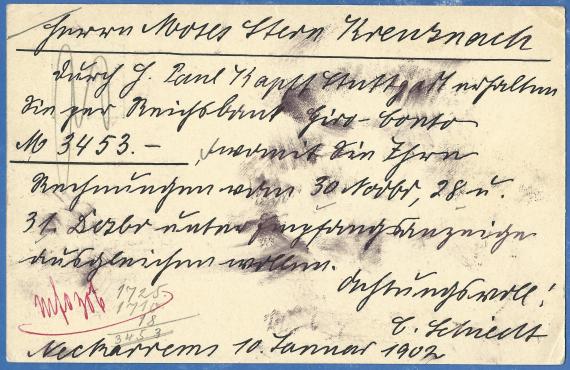 Herrn Moses Stern Kreuznach
Durch H. Paul Kapff Stuttgart erhalten
Sie per Reichsbank Giro-Conto
M 3453.- , womit Sie Ihre
Rechnungen vom 30 Novbr, 28 u.
31. Dezbr unter Empfangsanzeige
ausgleichen wollen.
Achtungsvoll!
1725.
1710
18
3453
Neckarrems 10. Januar 1902